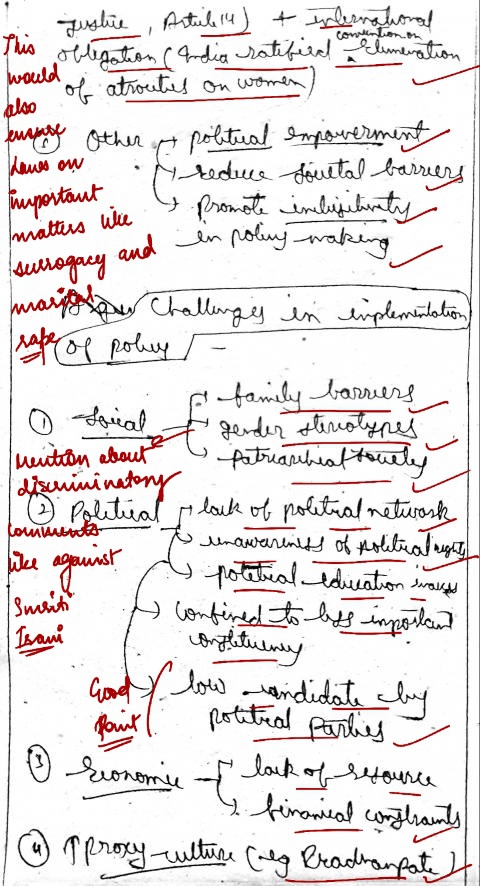 justice, Article 14) + international
convention on
obligation (India ratified Elimination
of atrocities on women)
This
would
also
ensure
laws on
important
matters like
surrogacy and
marital
rape
Other → political empowerment
→ reduce societal barriers
→ Promote inclusivity
in policy making
Challenges in implementation
of policy –
① Social → family barriers
→ gender steriotypes
→ Patriarchal Society
Mention about
discriminatory
comments
like against
Smriti
Irani
② Political → lack of political network
→ unawareness of political rights
→ political education
→ confined to less important
constituency
→ low candidate by
political parties
Good
Point
③ Economic → lack of resource
→ financial constraints
④ ↑ Proxy-culture (eg Pradhanpate)